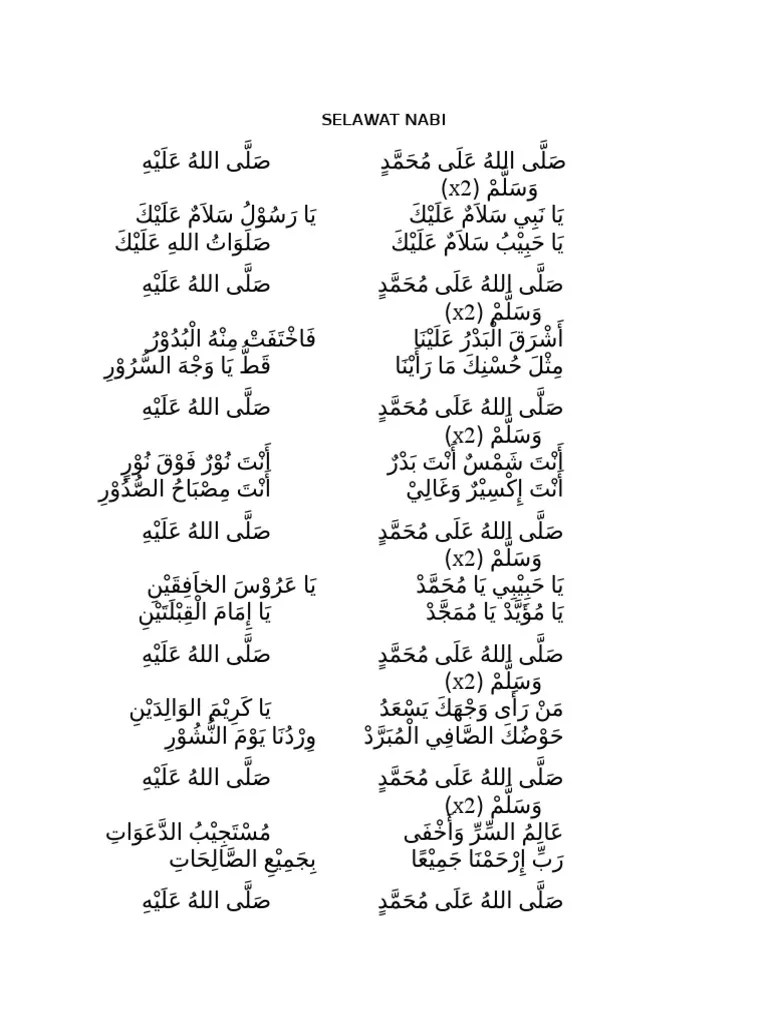 SELAWAT NABI
صَلَّى اللهُ عَلَى مُحَمَّدٍ صَلَّى اللهُ عَلَيْهِ
وَسَلَّمْ (x2)
يَا نَبِي سَلاَمٌ عَلَيْكَ يَا رَسُوْلُ سَلاَمٌ عَلَيْكَ
يَا حَبِيْبُ سَلاَمٌ عَلَيْكَ صَلَوَاتُ اللهِ عَلَيْكَ
صَلَّى اللهُ عَلَى مُحَمَّدٍ صَلَّى اللهُ عَلَيْهِ
وَسَلَّمْ (x2)
أَشْرَقَ الْبَدْرُ عَلَيْنَا فَاخْتَفَتْ مِنْهُ الْبُدُوْرُ
مِثْلَ حُسْنِكَ مَا رَأَيْنَا قَطُّ يَا وَجْهَ السُّرُوْرِ
صَلَّى اللهُ عَلَى مُحَمَّدٍ صَلَّى اللهُ عَلَيْهِ
وَسَلَّمْ (x2)
أَنْتَ شَمْسٌ أَنْتَ بَدْرٌ أَنْتَ نُوْرٌ فَوْقَ نُوْرٍ
أَنْتَ إِكْسِيْرٌ وَغَالِيْ أَنْتَ مِصْبَاحُ الصُّدُوْرِ
صَلَّى اللهُ عَلَى مُحَمَّدٍ صَلَّى اللهُ عَلَيْهِ
وَسَلَّمْ (x2)
يَا حَبِيْبِي يَا مُحَمَّدْ يَا عَرُوْسَ الخاَفِقَيْنِ
يَا مُؤَيَّدْ يَا مُمَجَّدْ يَا إِمَامَ الْقِبْلَتَيْنِ
صَلَّى اللهُ عَلَى مُحَمَّدٍ صَلَّى اللهُ عَلَيْهِ
وَسَلَّمْ (x2)
مَنْ رَأَى وَجْهَكَ يَسْعَدُ يَا كَرِيْمَ الوَالِدَيْنِ
حَوْضُكَ الصَّافِي الْمُبَرَّدْ وِرْدُنَا يَوْمَ النُّشُوْرِ
صَلَّى اللهُ عَلَى مُحَمَّدٍ صَلَّى اللهُ عَلَيْهِ
وَسَلَّمْ (x2)
عَالِمُ السِّرِّ وَأَخْفَى مُسْتَجِيْبُ الدَّعَوَاتِ
رَبِّ إِرْحَمْنَا جَمِيْعًا بِجَمِيْعِ الصَّالِحَاتِ
صَلَّى اللهُ عَلَى مُحَمَّدٍ صَلَّى اللهُ عَلَيْهِ